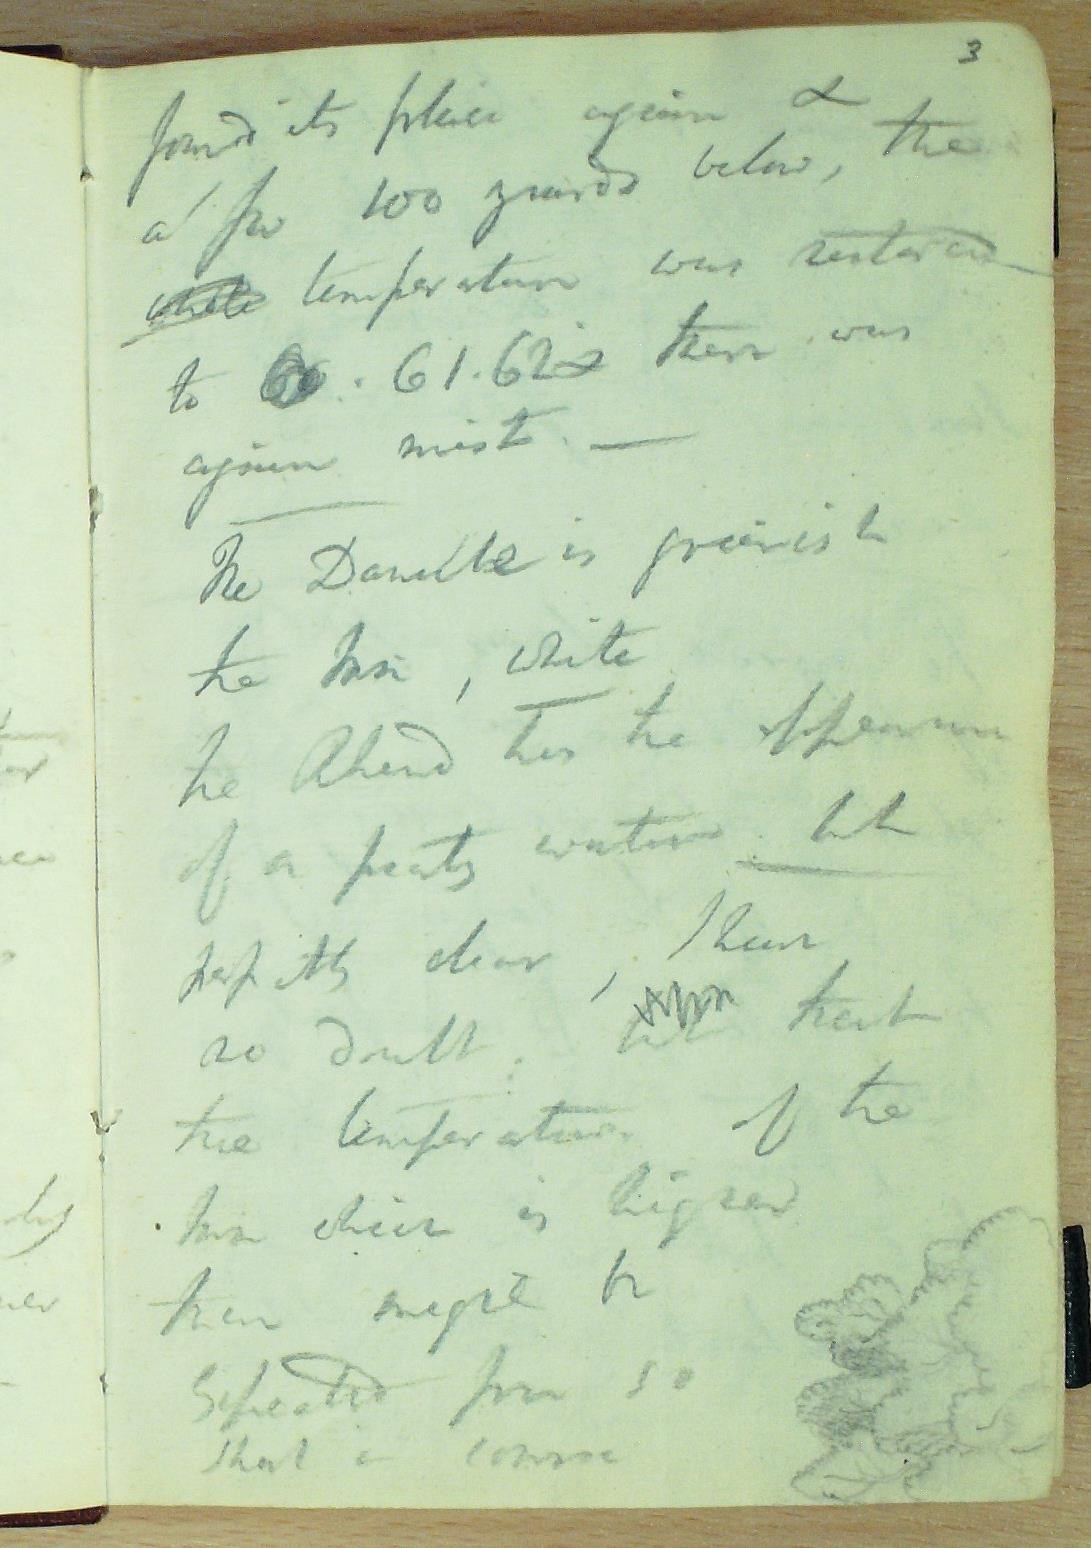 3
found its place again &
a few 100 yards below, the
while temperature was restored
to 60. 61.62 & there was
again mist. —
The Danube is greenish
the Inn, white
the has the appearance
of a peaty water. but
perfectly clear, I have
no doubt. but that
the temperature of the
Inn which is higher
than might be
expected from so
short a course